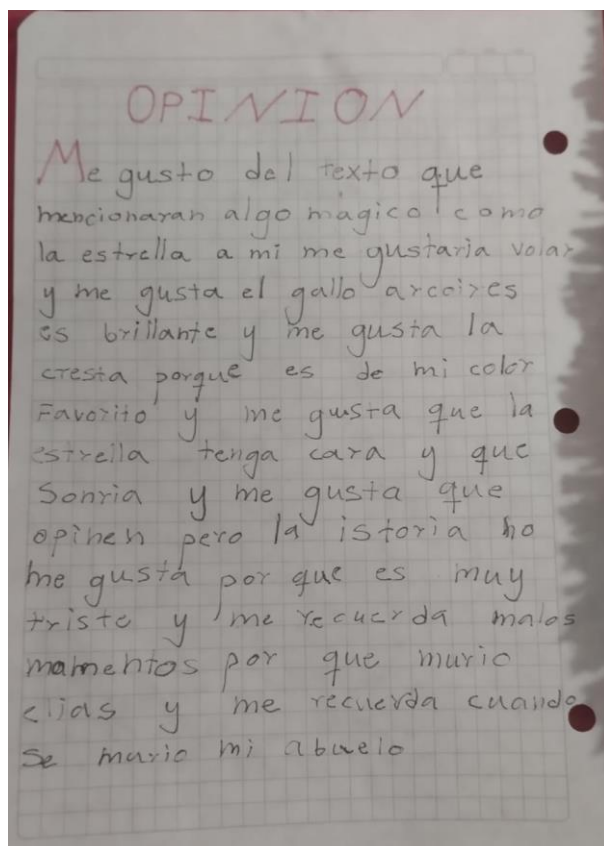 OPINION
Me gusto del texto que
mencionaran algo magico como
la estrella a mi me gustaria volar
y me gusta el gallo arcoires
es brillante y me gusta la
cresta porque es de mi color
Favorito y me gusta que la
estrella tenga cara y que
Sonria y me gusta que
opinen pero la istoria no
me gusta por que es muy
triste y me recuerda malos
mamentos por que murio
elias y me recuerda cuando
se murio mi abuelo